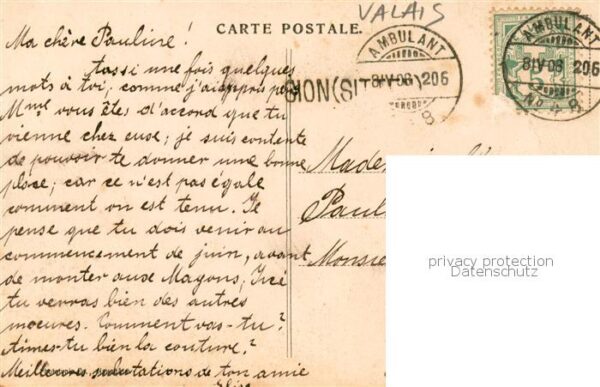 CARTE POSTALE.
VALAIS
Ma chère Pauline!
Aussi une fois quelques
mots à toi, comme j'ai appris par
Mme vous êtes d'accord que tu
vienne chez euse; je suis contente
de pouvoir te donner une bonne
place; car ce n'est pas égale
comment on est tenu. Je
pense que tu dois venir au
commencement de juin, avant
de monter aux Mayons, Ici
tu verras bien des autres
moeures. Comment vas-tu?
Aimes-tu bien la couture?
Meilleures salutations de ton amie
AMBULANT
8 IV 06 206
SION (SIT
AMBULANT
8 IV 06 206
No 4
Paul
Monsie
privacy protection
Datenschutz